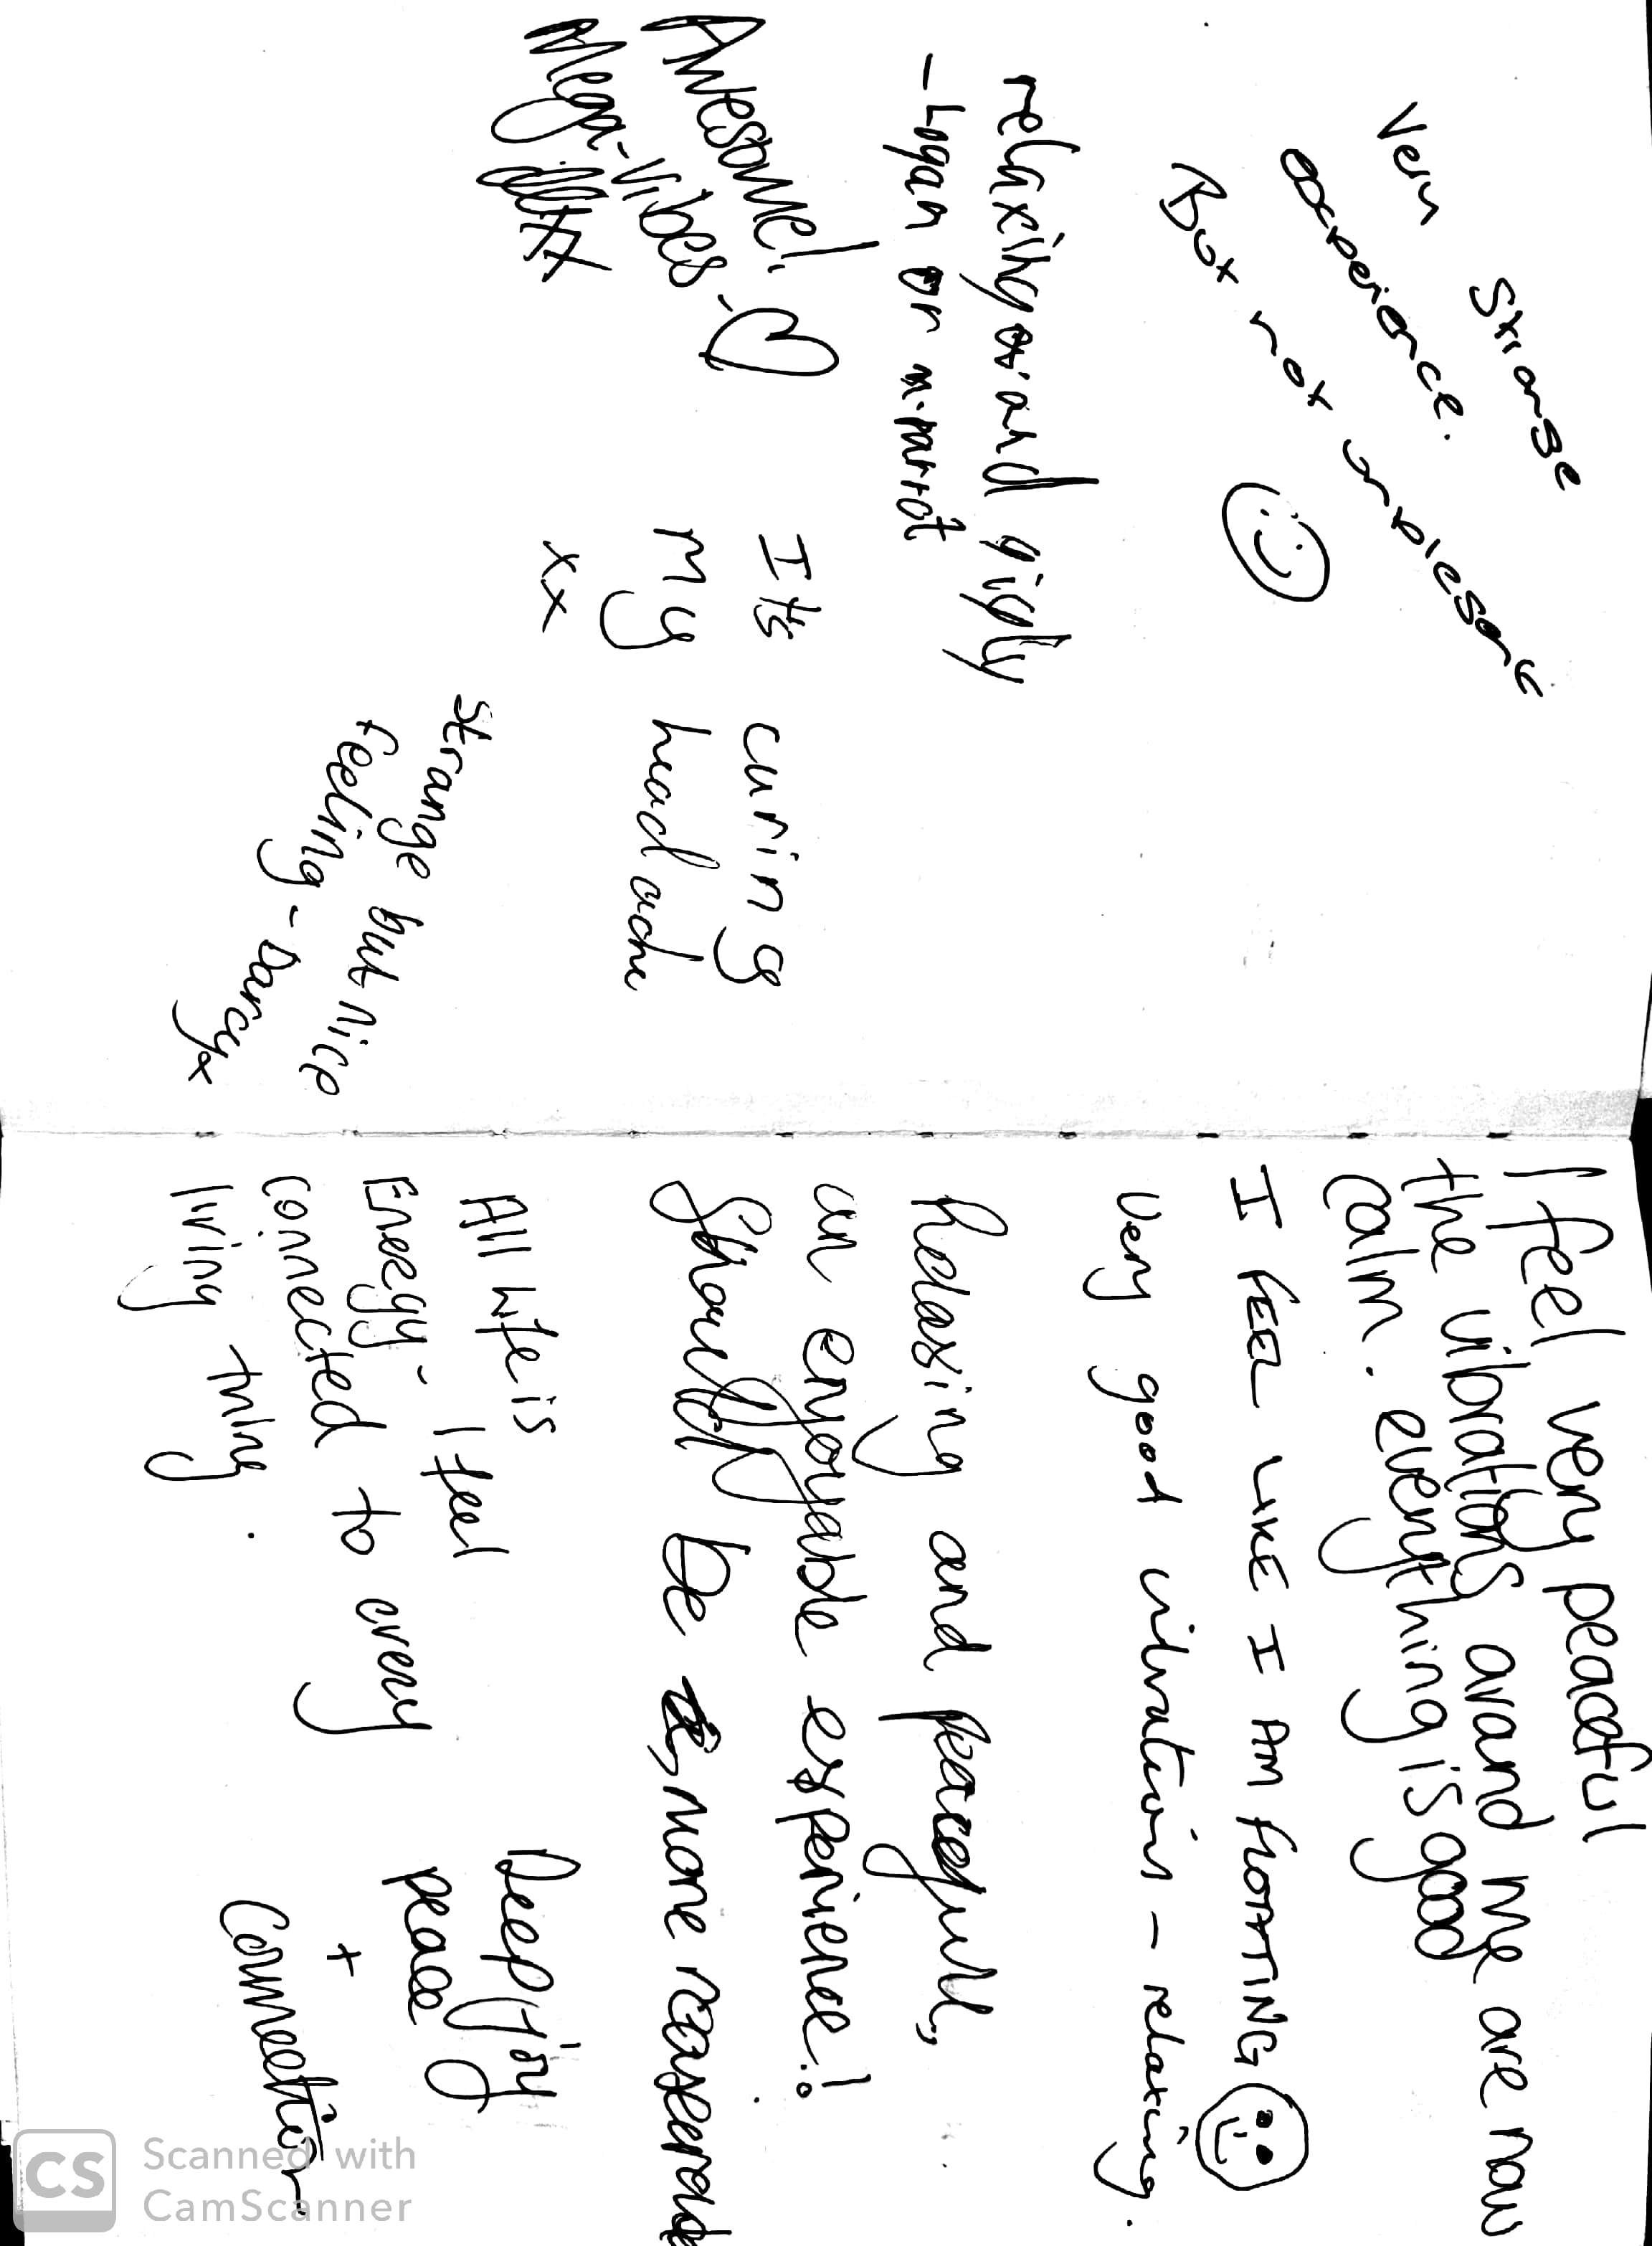 Very Strange
experience.
But not unpleasant
relaxing and
- Logan or m. parrot
Awesome!
Mega-Vibes
xx
Its curing
My headache
xx
Strange but nice
feeling - Darcy x
I feel very peaceful
the vibrations arand me are now
calm. everything is good
I FEEL LIKE I AM FLOATING
Very good vibrations - relaxing.
Relaxing and peacefull,
an enjoyable experience!
Should be more
All life is
Energy - I feel
connected to every
living thing.
Deep joy
peace
+
Connection
CS Scanned with
CamScanner